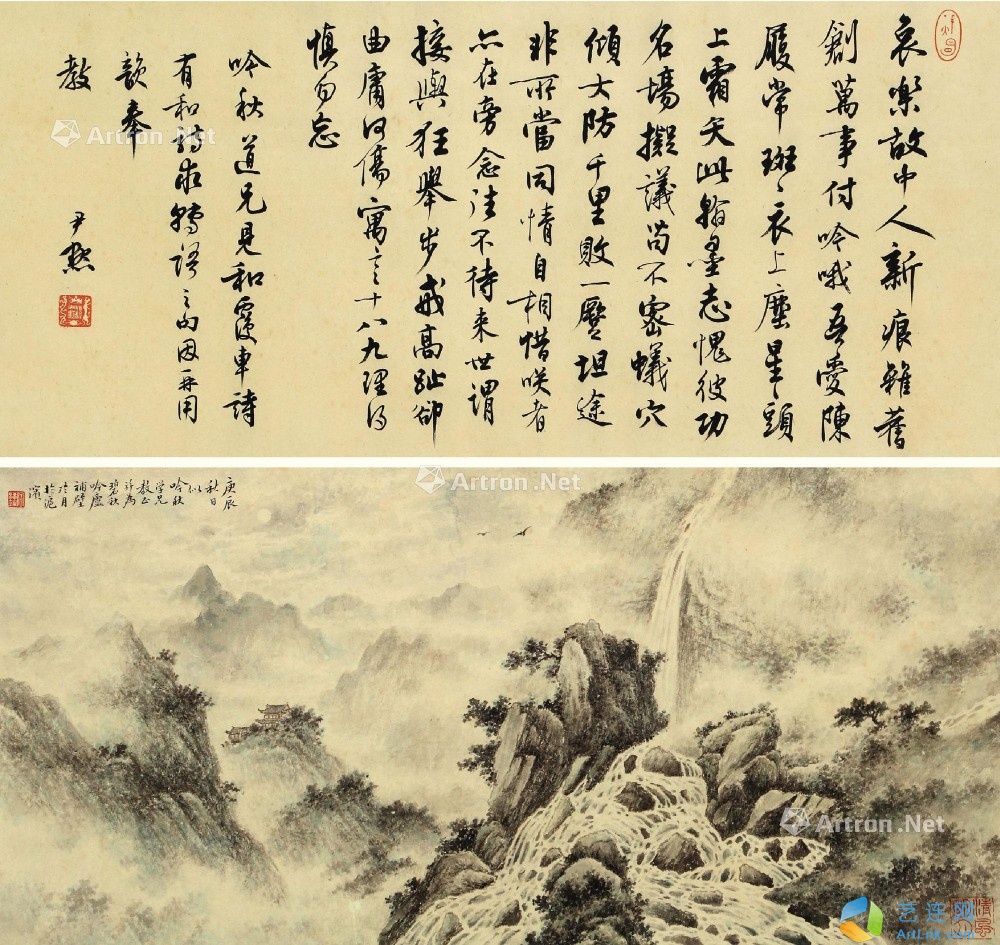 哀樂故中人新痕雜舊
創萬事付吟哦吾愛陳
履常斑斑衣上塵星星頭
上霜矢此翰墨志愧彼功
名場擬議苟不密蟻穴
傾大防千里敗一蹙坦途
非所當同情自相惜咲者
亦在旁念往不待来世謂
接輿狂舉步戒高趾卻
曲庸何傷寓言十八九理乃
慎勿忘
吟秋道兄見和覆車詩
有和詩求轉語之句因再用
韻奉
教
尹默
庚辰
秋日
似
吟秋
学兄
教正
并為
碧秋
吟盧
補壁
於滬
濱
Artron.Net
Artron.Net
Artron.Net
Artron.Net
艺连网
ArtLnk.com